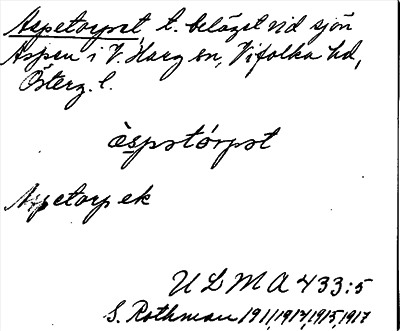 Aspetorpet, t. beläget vid sjön
Aspen i V. Harg sn, Vifolka hd,
Österg. l.
àspətórpət
Aspetorp ek
ULMA 433:5
S. Rothman 1911, 1914, 1915, 1917